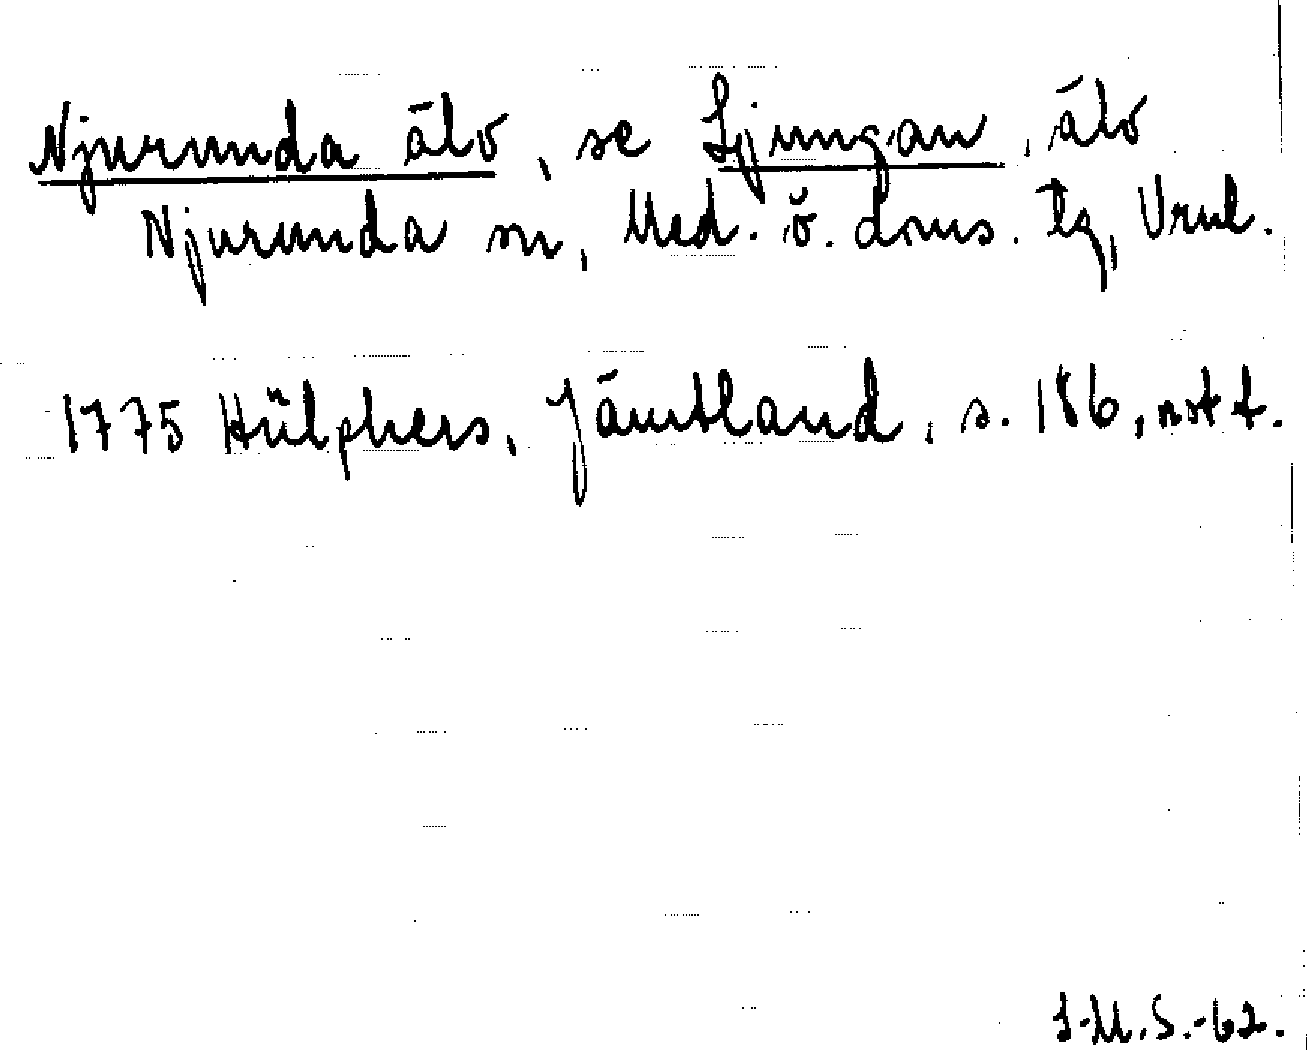 Njurunda älv, se Ljungan, älv
Njurunda sn, Med. ö. doms. tg, Vrnl.
1775 Hülphers, Jämtland, s. 186, not t.
I-M.S.-62.